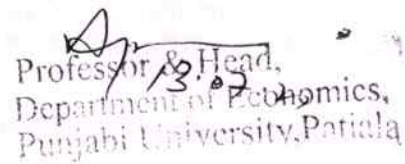 Professor & Head,
Department of Economics,
Punjabi University, Patiala